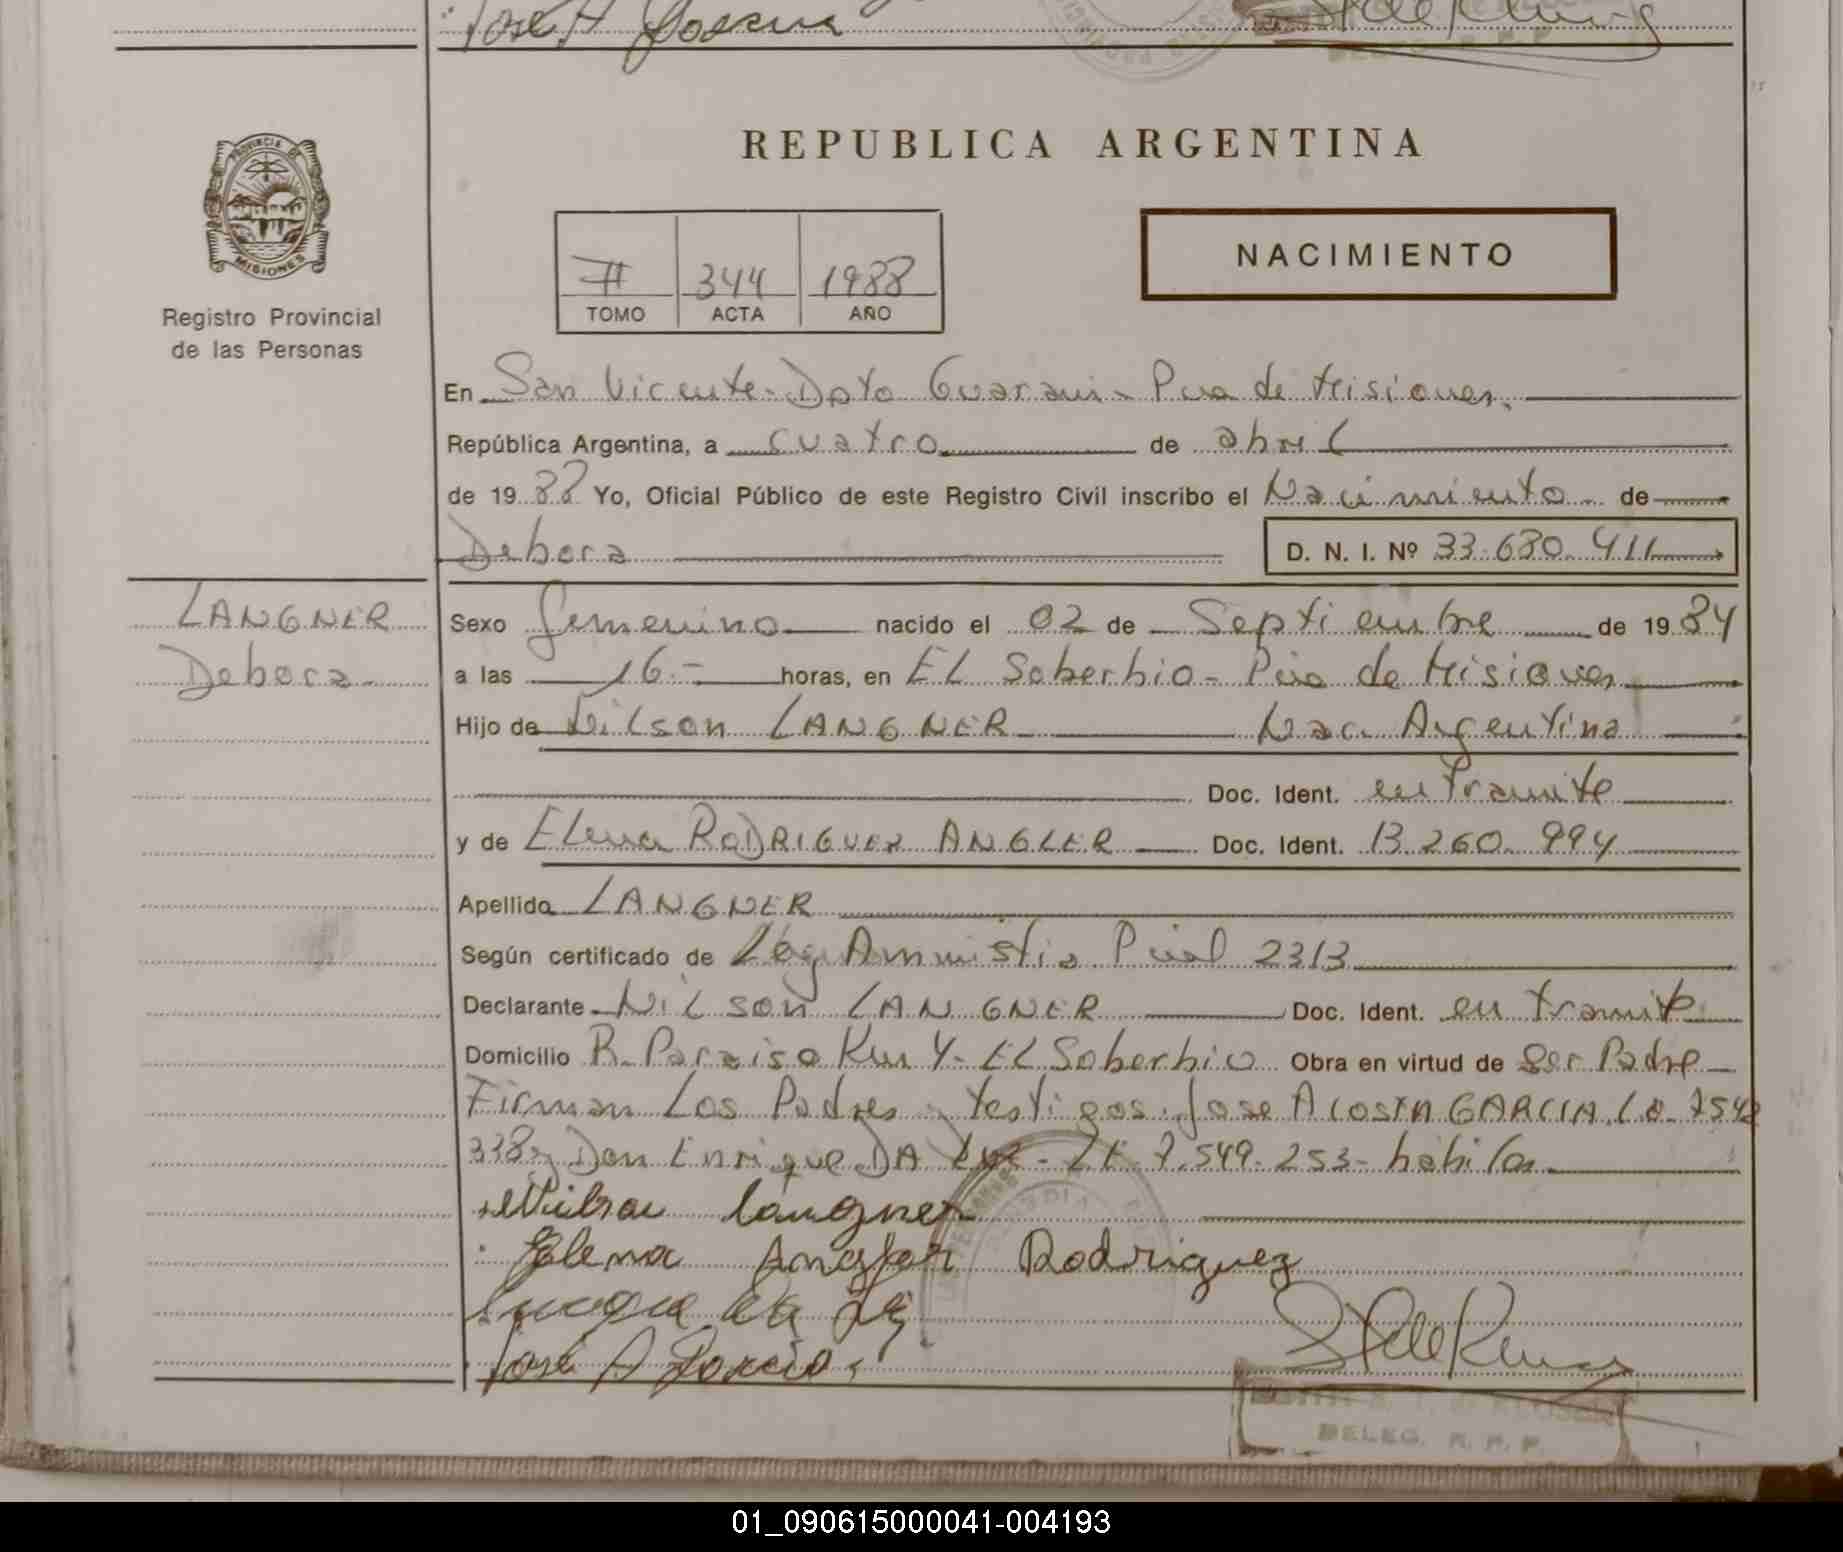 José A Garcia
REPUBLICA ARGENTINA
PROVINCIA DE
MISIONES
Registro Provincial
de las Personas
II 344 1988
TOMO ACTA AÑO
NACIMIENTO
En San Vicente - Dpto Guarani - Pcia de Misiones.
República Argentina, a cuatro de abril
de 1988 Yo, Oficial Público de este Registro Civil inscribo el Nacimiento de
Debora D. N. I. Nº 33.680.411
LANGNER
Debora
Sexo femenino nacido el 02 de Septiembre de 1984
a las 16.- horas, en EL Soberbio - Pcia de Misiones
Hijo de Nilson LANGNER Nac. Argentina
Doc. Ident. en Tramite
y de Elena RODRIGUEZ ANGLER Doc. Ident. 13.260.994
Apellido LANGNER
Según certificado de Ley Amnistia Pcial 2313
Declarante NILSON LANGNER Doc. Ident. en tramite
Domicilio B. Paraiso Km 4 - EL Soberbio Obra en virtud de Ser Padre
Firman Los Padres y testigos. Jose ACOSTA GARCIA. 7542
338 y Don Enrique DA Luz - LE 7.549.253 - habiles
Nilson Langner
Elena Angler Rodriguez
José A Garcia
DELEG. R. P. P.
01_090615000041-004193